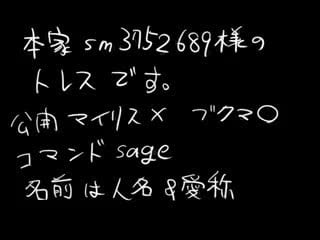 本家sm3752689様の
トレスです。
公開マイリス× ブクマ○
コマンドsage
名前は人名&愛称